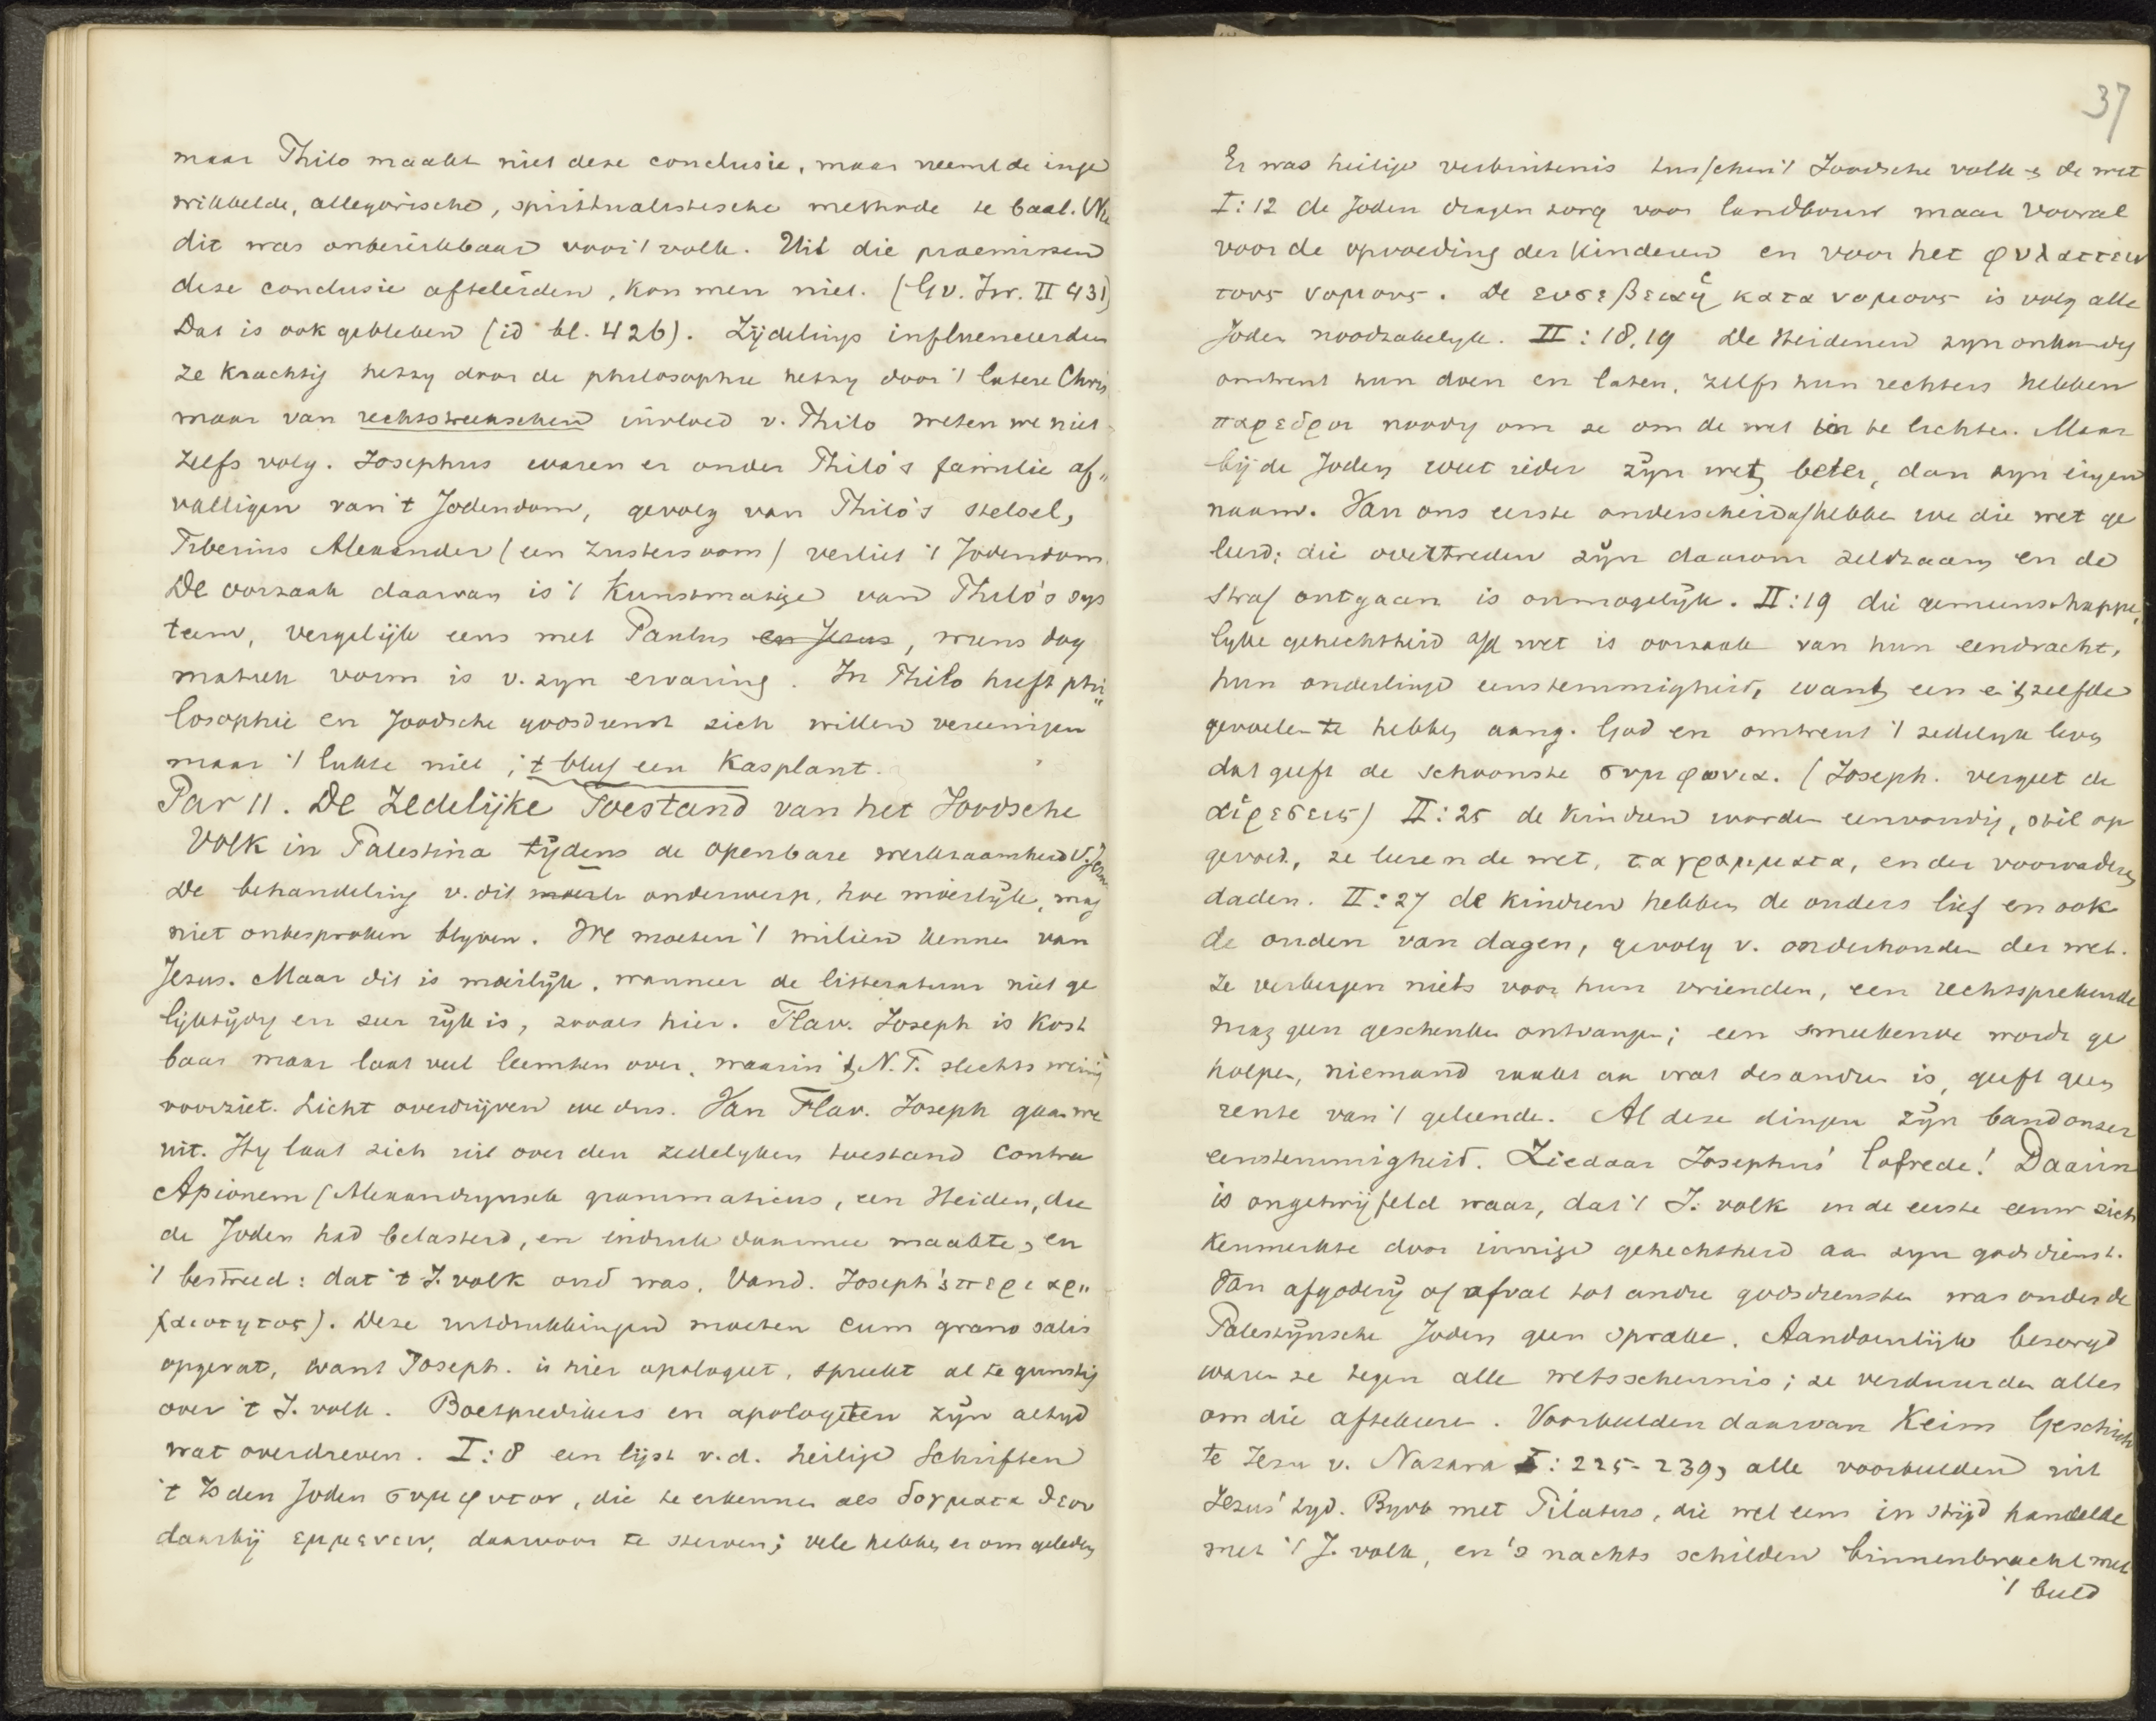 maar Philo maakt niet deze conclusie, maar neemt de inge
wikkelde, allegorische, spiritualistische methode te baat. Nu
dit was onbereikbaar voor 't volk. Uit die praemissen
deze conclusie afteleiden, kon men niet. (Gv. Isr. II 431)
Dat is ook gebleken (id bl. 426). Zijdelings influenceerden
ze krachtig hetzy door de philosophie hetzy door 't latere Chris
maar van rechtstreekschen invloed v. Philo weten we niet
zelfs volg. Josephus waren er onder Philo's familie af„
valligen van 't Jodendom, gevolg van Philo's stelsel,
Tiberius Alexander (een zusterszoon) verliet 't Jodendom.
De oorzaak daarvan is 't Kunstmatige van Philo's sys
teem, vergelijk eens met Paulus en Jezus, wiens dog
matiek vorm is v. zyn ervaring. In Philo heeft phi„
losophie en Joodsche godsdienst zich willen vereenigen
maar 't lukte niet; 't bleef een Kasplant.
Par 11. De Zedelijke Toestand van het Joodsche
Volk in Palestina tijdens de openbare werkzaamheid v. Jezus
De behandeling v. dit onderwerp, hoe moeilijk, mag
niet onbesproken blyven. We moeten 't milieu kennen van
Jezus. Maar dit is moeilijk, wanneer de litteratuur niet ge
lijktijdig en zeer rijk is, zooals hier. Flav. Joseph is Kost
baar maar laat veel leemten over, waarin 't N.T. slechts weinig
voorziet. Licht overdrijven we dus. Van Flav. Joseph gaan we
uit. Hy laat zich uit over den zedelyken toestand Contra
Apionem (Alexandrynsch grammaticus, een Heiden, die
de Joden had belasterd, en indruk daarmee maakte, en
't bestreed: dat 't J. volk oud was. Vand. Joseph's περι αρ„
χαιοτητος). Deze uitdrukkingen moeten cum grano salis
opgevat, want Joseph. is hier apologeet, spreekt al te gunstig
over 't J. volk. Boetpredikers en apologeten zijn altyd
wat overdreven. I:8 een lijst v.d. heilige Schriften
't Is den Joden συμφυτον, die te erkennen als δογματα θεου
daarbij εμμενειν, daarvoor te sterven; vele hebben er om geleden
37
Er was heilige verbintenis tusschen 't Joodsche volk & de wet
I:12 de Joden dragen zorg voor landbouw maar vooral
voor de opvoeding der Kinderen en voor het φυλαττειν
τους νομους. De ευσεβεια ἡ κατα νομους is volg alle
Joden noodzakelyk. II:18,19 De Heidenen zyn onkundig
omtrent hun doen en laten, zelfs hun rechters hebben
παρεδροι noodig om ze om de wet in te lichten. Maar
bij de Joden weet ieder zijn wet beter, dan zyn eigen
naam. Van ons eerste onderscheid af hebben we die wet ge
leerd; die overtreden zijn daarom zeldzaam en de
straf ontgaan is onmogelijk. II:19 die gemeenschappe„
lyke gehechtheid a/d wet is oorzaak van hun eendracht,
hun onderlinge eenstemmigheid, want een en 't zelfde
gevoelen te hebben aang. God en omtrent 't zedelyk leven
dat geeft de schoonste συμφωνια. (Joseph. vergeet de
αἱρεσεις) II:25 de kindren worden eenvoudig, stil op
gevoed, ze leeren de wet, τα γραμματα, en der voorvaderen
daden. II:27 de kindren hebben de ouders lief en ook
de ouden van dagen, gevolg v. onderhouden der wet.
Ze verbergen niets voor hun vrienden, een rechtsprekende
mag geen geschenken ontvangen; een smeekende wordt ge
holpen, niemand raakt aan wat des andren is, geeft geen
rente van 't geleende. Al deze dingen zijn band onzer
eenstemmigheid. Ziedaar Josephus' lofrede! Daarin
is ongetwijfeld waar, dat 't J. volk in de eerste eeuw zich
Kenmerkte door innige gehechtheid aan zyn godsdienst.
Van afgodery of afval tot andre godsdiensten was onder de
Palestijnsche Joden geen sprake. Aandoenlijk bezorgd
waren ze tegen alle wetsschennis; ze verduurden alles
om die aftekeeren. Voorbeelden daarvan Keim Geschich
te Jesu v. Nazara I:225-239, alle voorbeelden uit
Jezus' tyd. Byvb met Pilatus, die wel eens in strijd handelde
met 't J. volk, en 's nachts schilden binnenbracht met
't beeld